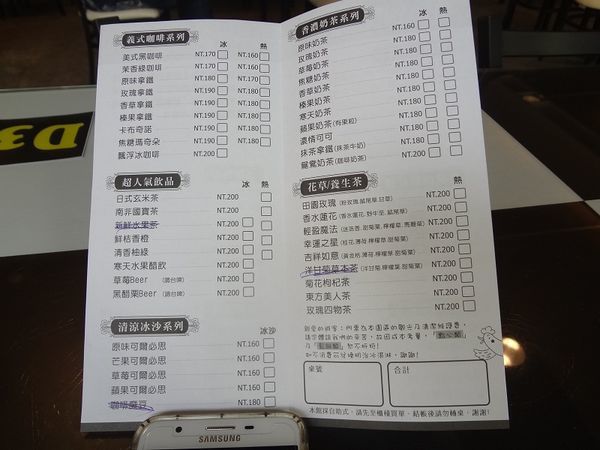 義式咖啡系列 冰 熱
美式黑咖啡 NT.170 NT.160
茉香綠咖啡 NT.170 NT.160
原味拿鐵 NT.180 NT.170
玫瑰拿鐵 NT.190 NT.180
香草拿鐵 NT.190 NT.180
榛果拿鐵 NT.190 NT.180
卡布奇諾 NT.190 NT.180
焦糖瑪奇朵 NT.190 NT.180
飄浮冰咖啡 NT.200
超人氣飲品 冰 熱
日式玄米茶 NT.200
南非國寶茶 NT.200
新鮮水果茶 NT.200
鮮桔香橙 NT.200
清香柚綠 NT.200
寒天水果醋飲 NT.200
草莓Beer NT.200
黑醋栗Beer NT.200
清涼冰沙系列 冰沙
原味可爾必思 NT.160
芒果可爾必思 NT.160
草莓可爾必思 NT.160
蘋果可爾必思 NT.160
咖啡魔豆 NT.180
香濃奶茶系列 冰 熱
原味奶茶 NT.160
玫瑰奶茶 NT.180
草莓奶茶 NT.180
焦糖奶茶 NT.180
香草奶茶 NT.180
榛果奶茶 NT.180
寒天奶茶 NT.180
蘋果奶茶 NT.180
濃情可可 NT.180
抹茶拿鐵(抹茶牛奶) NT.180
鴛鴦奶茶(咖啡奶茶) NT.200
花草/養生茶 冰 熱
田園玫瑰 NT.200
香水蓮花 NT.200
輕盈魔法 NT.200
幸運之星 NT.200
吉祥如意 NT.200
洋甘菊草本茶 NT.200
菊花枸杞茶 NT.200
東方美人茶 NT.200
玫瑰四物茶 NT.200
桌號 合計
本館採自助式，請先至櫃檯買單，結帳後請勿轉桌，謝謝!
SAMSUNG